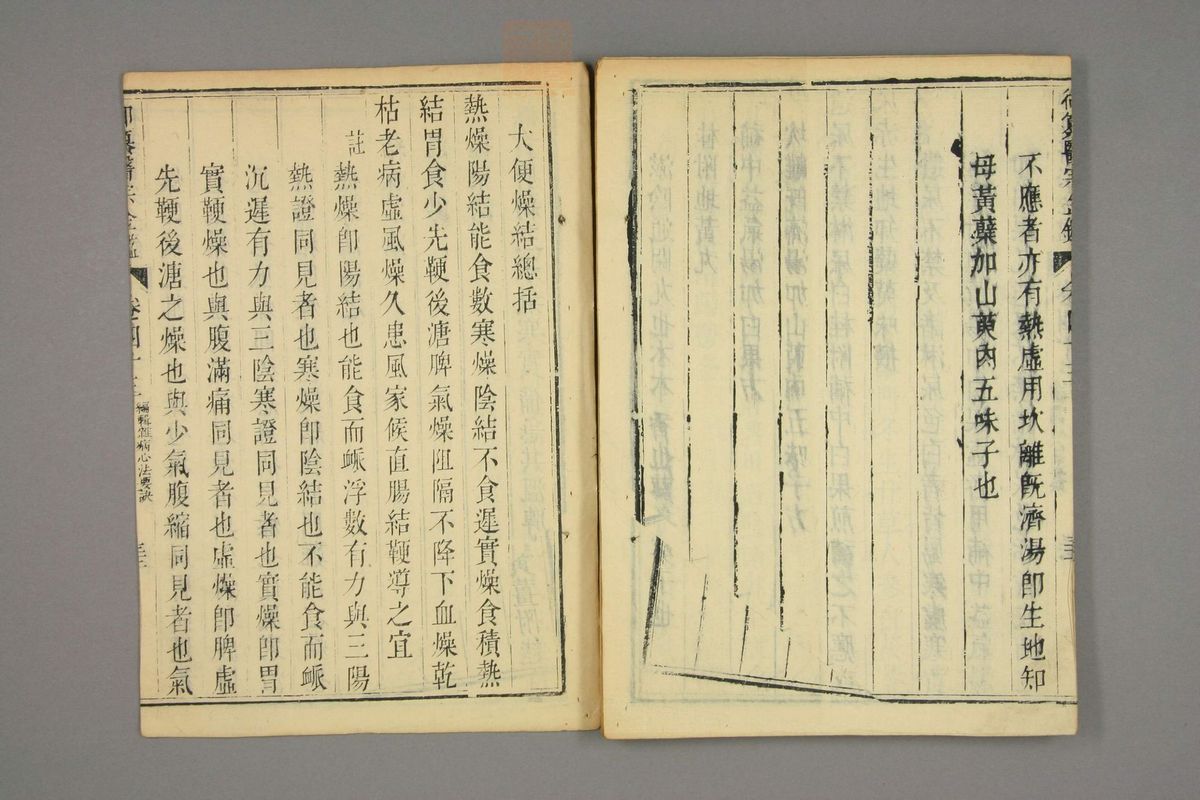 不應者亦有熱虛用坎離既濟湯卽生地知
母黃蘗加山萸肉五味子也
大便燥結總括
熱燥陽結能食數寒燥陰結不食遲實燥食積熱
結胃食少先鞕後溏脾氣燥阻隔不降下血燥乾
枯老病虛風燥久患風家候直腸結鞕導之宜
註熱燥卽陽結也能食而脈浮數有力與三陽
熱證同見者也寒燥卽陰結也不能食而脈
沉遲有力與三陰寒證同見者也實燥卽胃
實鞕燥也與腹滿痛同見者也虛燥卽脾虛
先鞕後溏之燥也與少氣腹縮同見者也氣
御纂醫宗金鑑
編輯雜病心法要訣